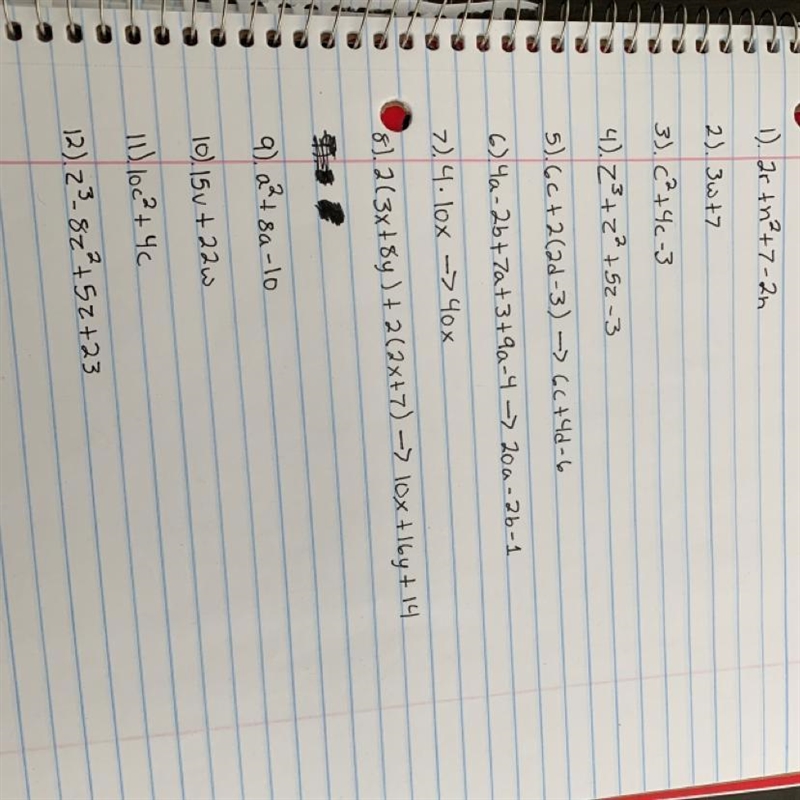 1). 2r + n² + 7 - 2n
2). 3w + 7
3). c² + 4c - 3
4). z³ + z² + 5z - 3
5). 6c + 2(2d - 3) → 6c + 4d - 6
6) 4a - 2b + 7a + 3 + 9a - 4 → 20a - 2b - 1
7). 4 · 10x → 40x
8). 2(3x + 8y) + 2(2x + 7) → 10x + 16y + 14
9). a² + 8a - 10
10). 15v + 22w
11). 10c² + 4c
12) z³ - 8z² + 5z + 23